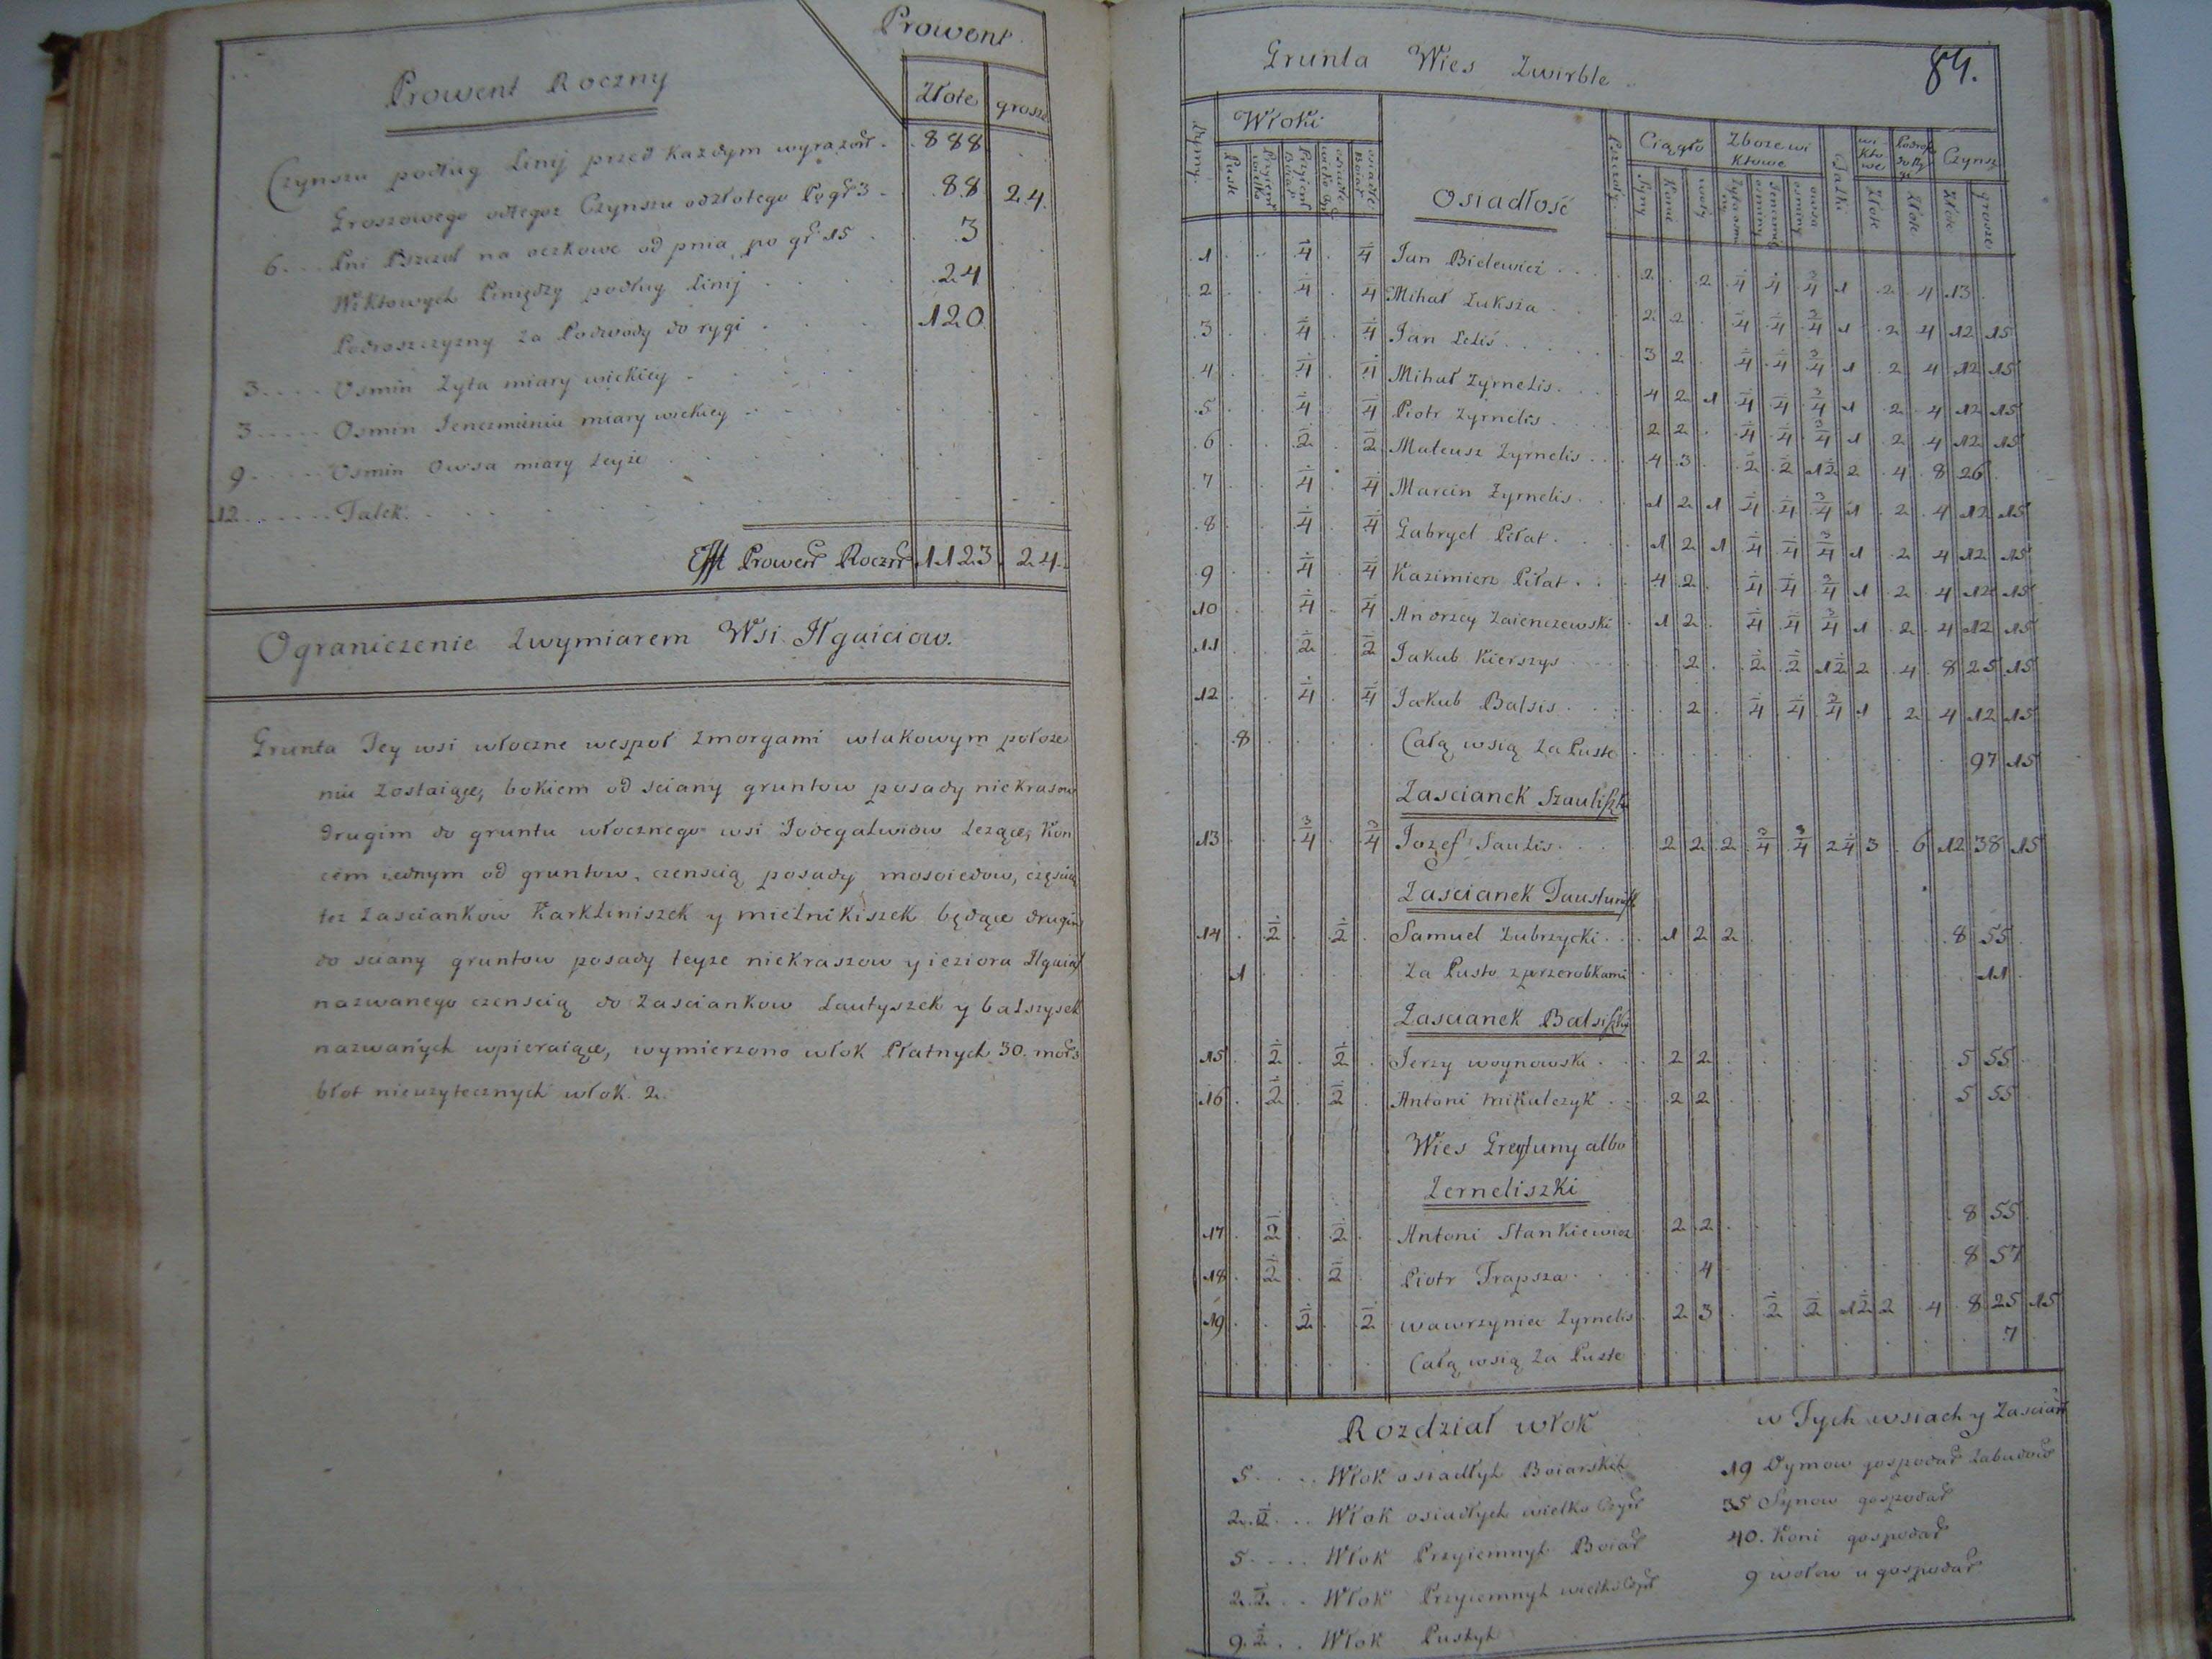 Prowent
Prowent Roczny
Złote grosze
Czynszu podług Linij przed Każdym wyrazon . 888
Groszowego odtegoz Czynszu odzłotego Po gr 3 . 88 24
6 . . . Pni Pszczoł na oczkowe od pnia po gr 15 . 3
Wiktowych Pieniędzy podług Linij . . . 24
Podroszczyzny za Podwody do rygi . . . 120
3 . . . . Osmin Zyta miary wielkiey
3 . . . . Osmin Jenczmieniu miary wielkiey
9 . . . . Osmin Owsa miary teyże
12 . . . . . Talek
Efft Prowent Roczn 1123 24
Ograniczenie Zwymiarem Wsi Ilgaiciow.
Grunta Tey wsi włoczne wespoł zmorgami wtakowym położe
niu zostaiące, bokiem od sciany gruntow posady niekraszow
drugim do gruntu włocznego wsi Jodegalwiow leżące, Kon
cem iednym od gruntow, czenscią posady mosciedow, częscią
tez zasciankow Karkliniszek y mielnikiszek będące drugim
do sciany gruntow posady teyze niekraszow y ieziora Ilgai
nazwanego czenscią do zasciankow Lautyszek y balszyszek
nazwanych wpieraiące, wymierzono włok Płatnych 30. mor
błot nieuzytecznych włok. 2.
Grunta Wies Zwirble 84.
Dymy Włoki Osiadłość Pszczoły Ciągło Zboże wi Talki wi Podroszczyzny Czynsz
Puste Synow Konie woły ktowe ktowe Złote Złote Złote grosze
1 4 4 Jan Bidewicz 2 2 4 4 3/4 1 2 4 13
2 4 4 Michał Łuksza 2 2 4 4 3/4 1 2 4 12 15
3 4 4 Jan Lelis 3 2 4 4 3/4 1 2 4 12 15
4 4 4 Mihał Zyrnelis 4 2 1 4 4 3/4 1 2 4 12 15
5 4 4 Piotr Zyrnelis 2 2 4 4 3/4 1 2 4 12 15
6 2 2 Mateusz Zyrnelis 4 3 2 2 1 2 2 4 8 26
7 4 4 Marcin Zyrnelis 1 2 1 4 4 3/4 1 2 4 12 15
8 4 4 Gabryel Piłat 1 2 1 4 4 3/4 1 2 4 12 15
9 4 4 Kazimierz Piłat 4 2 4 4 3/4 1 2 4 12 15
10 4 4 Andrzey Zaienczewski 1 2 4 4 3/4 1 2 4 12 15
11 2 2 Jakub Kierszys 2 2 2 1 2 2 4 8 25 15
12 4 4 Jakub Balsis 2 4 4 3/4 1 2 4 12 15
8 Całą wsią za Puste 97 15
Zascianek Szauliszki
13 3/4 3/4 Jozef Saulis 2 2 2 3/4 3/4 2 4 3 6 12 38 15
Zascianek Tausturiszki
14 2 2 Samuel Zubrzycki 1 2 2 8 55
1 Za Pusto zprzerobkami 11
Zascianek Balsiszki
15 2 2 Jerzy woynowski 2 2 5 55
16 2 2 Antoni mikulczyk 2 2 5 55
Wies Greytuny albo
Zerneliszki
17 2 2 Antoni Stankiewicz 2 2 8 55
18 2 2 Piotr Trapsza 4 8 57
19 2 2 wawrzyniec Zyrnelis 2 3 2 2 1 2 2 4 8 25 15
Całą wsią za Puste 7
Rozdział włok w Tych wsiach y Zascian
5 . . . . Włok osiadłych Boiarskich 19 Dymow gospodar zabudow
2. 2 . . Włok osiadłych wielko Czyn 35 Synow gospodar
5 . . . . Włok Przyiemnych Boiar 40. Koni gospodar
2. 2 . . Włok Przyiemnych wielko Czyn 9 wołow u gospodar
9. 2 . . Włok Pustych